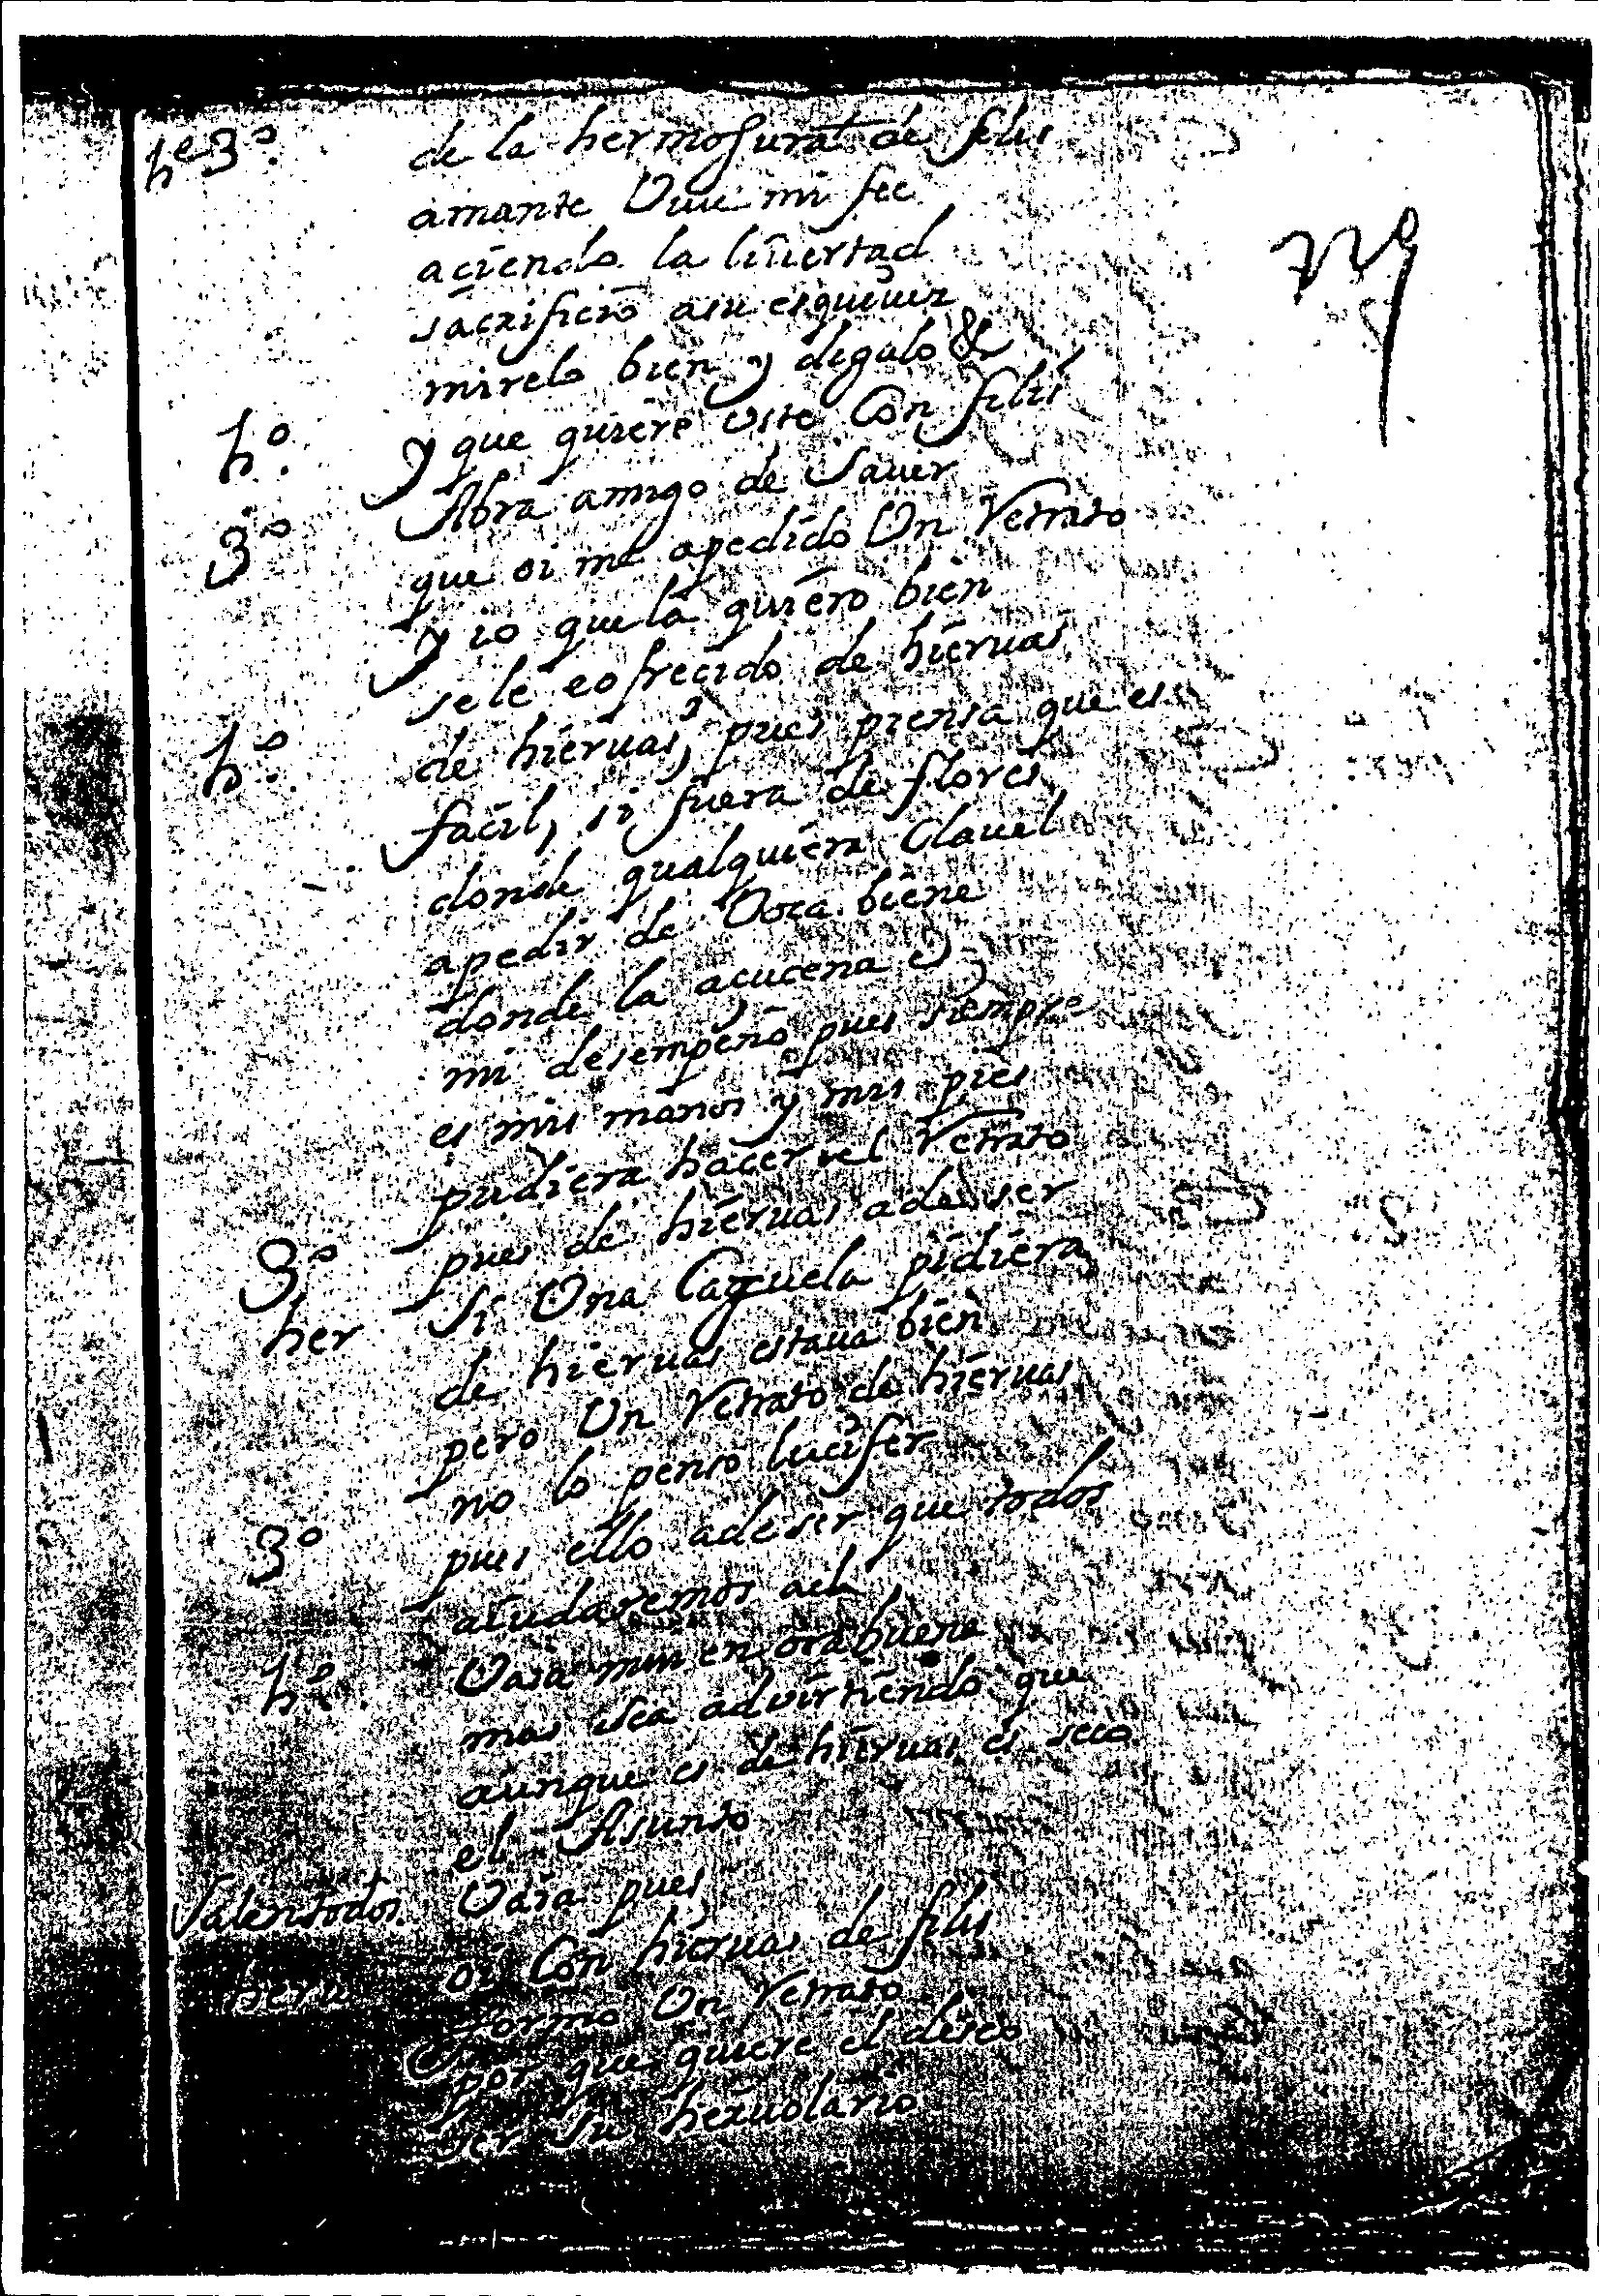 he 3º de la hermosura de filis
amante Viue mi fee
açiendo la liuertad
sacrificio asu esquiuez
mirelo bien y digalo &
hº. y que quiere uste Con filis
3º Abra amigo de Sauer
que oi me apedido Vn Retrato
y io que la quiero bien
sele eofreçido de hieruas
hº. de hieruas, pues piensa que es
façil, si fuera de flores
donde qualquiera Clauel
apedir de Voca biene
donde la açucena es
mi desempeño pues siempre
es mis manos y mis pies
pudiera hacer el Retrato
pues de hieruas ade ser
3º Si Vna Caçuela pidiera
her de hieruas estaua bien
pero Vn Retrato de hieruas
no lo penso lucifer
3º pues ello adeser que todos
aiudaremos ael
hº. Vaia mui en ora buena
mas sea advirtiendo que
aunque es de hieruas es seco
el Asunto
Salen todos. Vaia pues
heru oi Con hieruas de filis
formo Vn Retrato
por que quiere el deseo
ser su heruolario